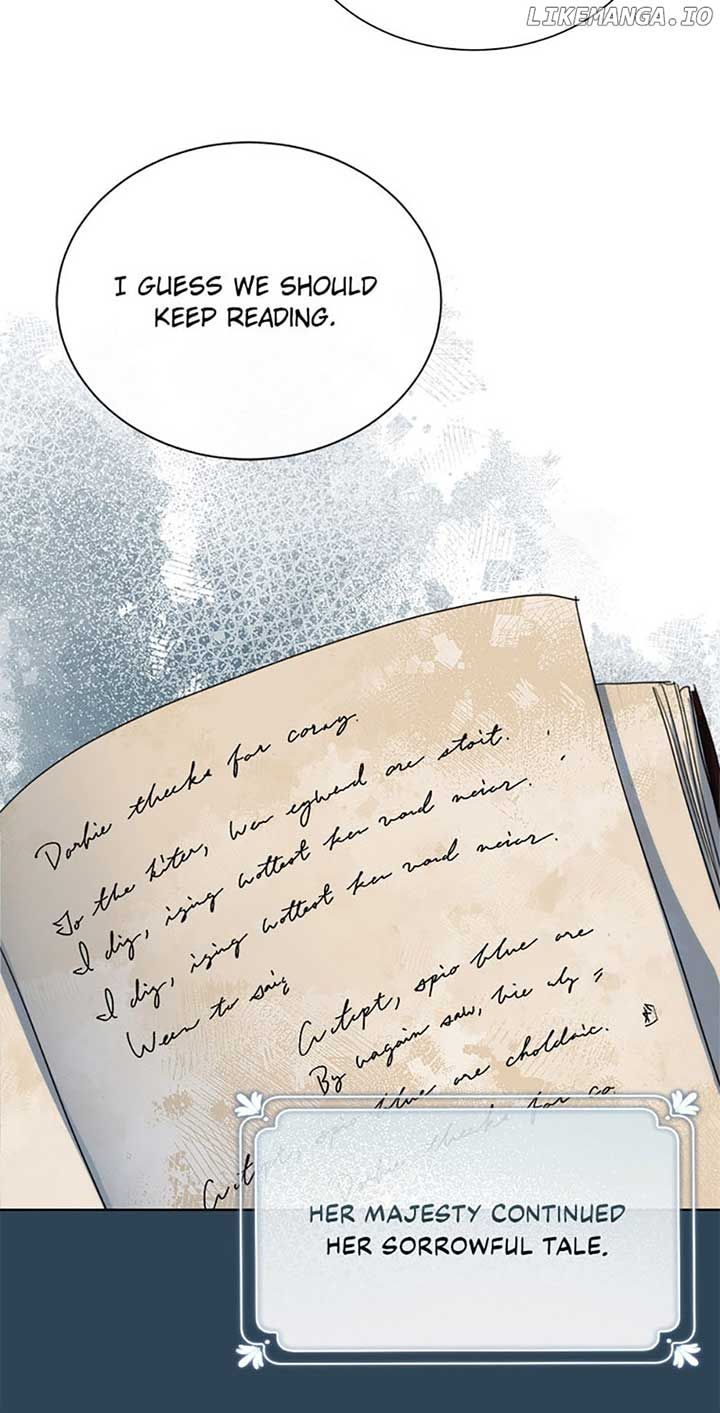 LIKEMANGA.IO
I GUESS WE SHOULD
KEEP READING.
Dorbie theeks for coray.
To the kiter, Wen egwend are stoit.
I dig, izing wottest her vard neier.
I dig, izing wottest her vard neier.
Ween to saig
Civtept, spio blue are
By wagain saw, bie uly =
blue are choldaic.
Dorbie theeks for co
HER MAJESTY CONTINUED
HER SORROWFUL TALE.